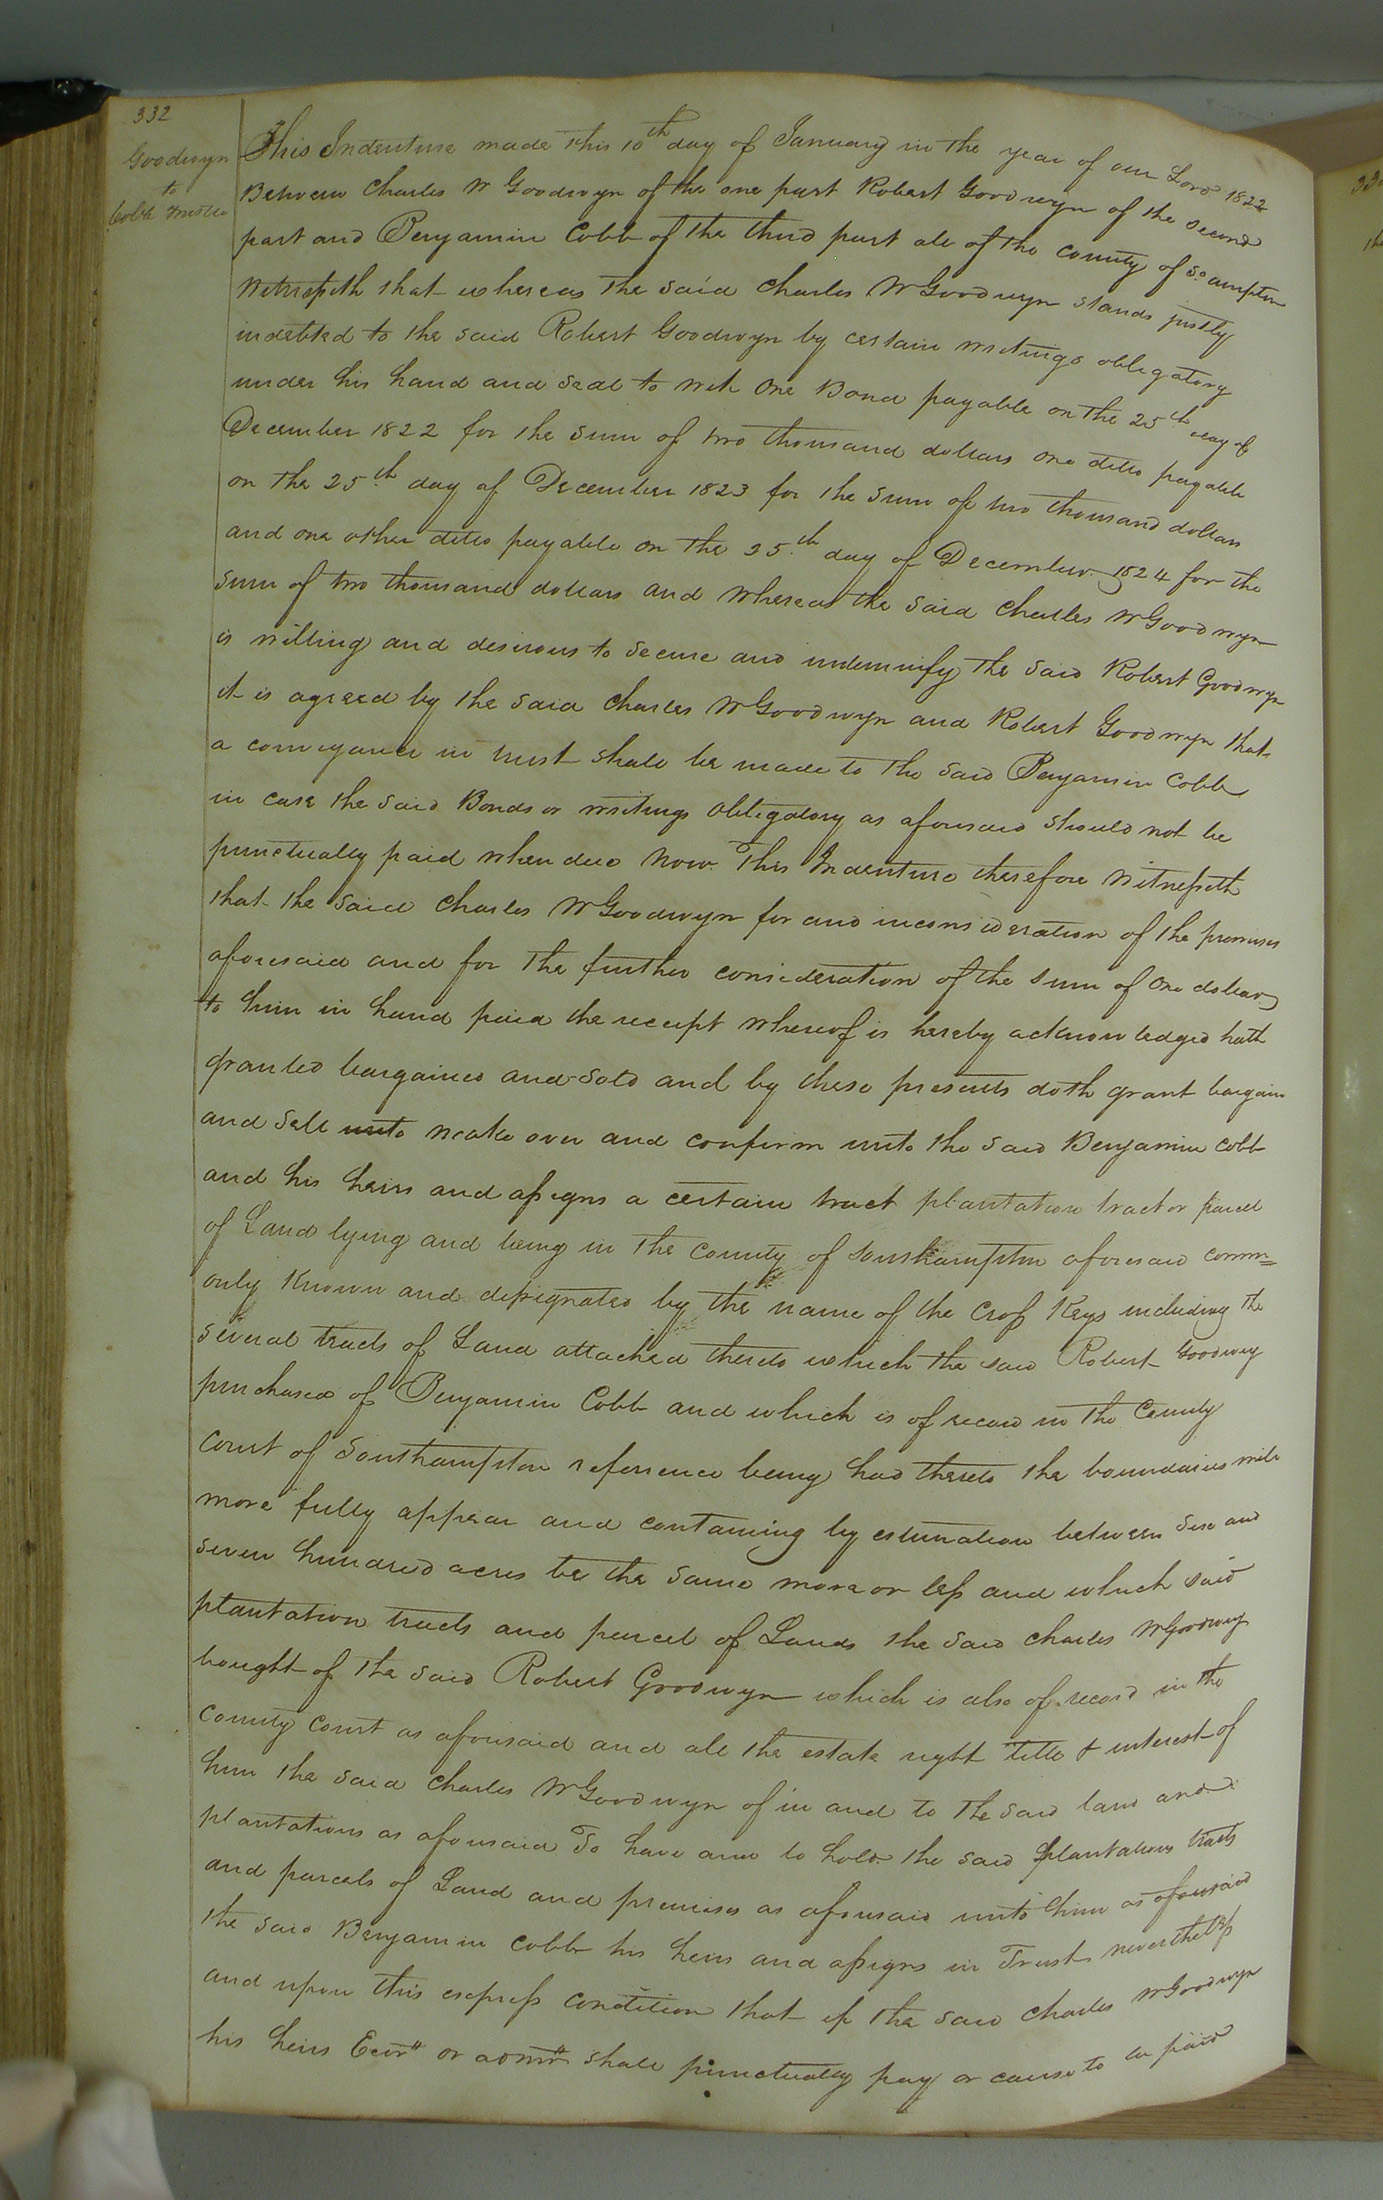 332
Goodwyn
to
Cobb Trustee
This Indenture made this 10th day of January in the year of our Lord 1822
Between Charles W Goodwyn of the one part Robert Goodwyn of the second
part and Benjamin Cobb of the third part all of the county of So ampton
Witnesseth that whereas the said Charles W Goodwyn stands justly
indebted to the said Robert Goodwyn by certain writings obligatory
under his hand and seal to wit One Bond payable on the 25th day of
December 1822 for the sum of two thousand dollars one ditto payable
on the 25th day of December 1823 for the sum of two thousand dollars
and one other ditto payable on the 25th day of December 1824 for the
sum of two thousand dollars and whereas the said Charles W Goodwyn
is willing and desirous to secure and indemnify the said Robert Goodwyn
it is agreed by the said Charles W Goodwyn and Robert Goodwyn that
a conveyance in trust shall be made to the said Benjamin Cobb
in case the said Bonds or writings obligatory as aforesaid should not be
punctually paid when due Now This Indenture therefore Witnesseth
that the said Charles W Goodwyn for and inconsideration of the premises
aforesaid and for the further consideration of the sum of one dollar
to him in hand paid the receipt whereof is hereby acknowledged hath
granted bargained and sold and by these presents doth grant bargain
and sell unto make over and confirm unto the said Benjamin Cobb
and his heirs and assigns a certain tract plantation tract or parcel
of Land lying and being in the County of Southampton aforesaid comm=
only known and designated by the name of the Cross Keys including the
several tracts of Land attached thereto which the said Robert Goodwyn
purchased of Benjamin Cobb and which is of record in the County
Court of Southampton reference being had thereto the boundaries will
more fully appear and containing by estimation between six and
seven hundred acres be the same more or less and which said
plantation tracts and parcel of Lands the said Charles W Goodwyn
bought of the said Robert Goodwyn which is also of record in the
County Court as aforesaid and all the estate right title & interest of
him the said Charles W Goodwyn of in and to the said land and
plantations as aforesaid To have and to hold the said plantations tracts
and parcels of Land and premises as aforesaid unto him as aforesaid
the said Benjamin Cobb his heirs and assigns in Trust nevertheless
and upon this express condition that if the said Charles W Goodwyn
his heirs Exors or admrs shall punctually pay or cause to be paid